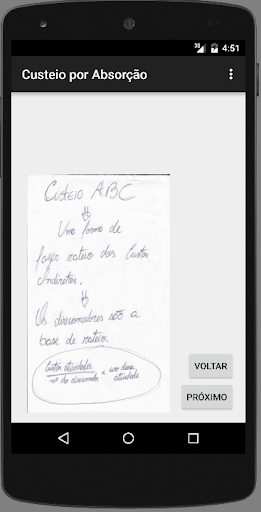 3G 4:51
Custeio por Absorção
Custeio ABC
Uma forma de
fazer rateio dos Custos
Indiretos.
Os direcionadores são a
base de rateio.
Custos atividades
nº do direcionador
x uso dessa
atividade
VOLTAR
PRÓXIMO